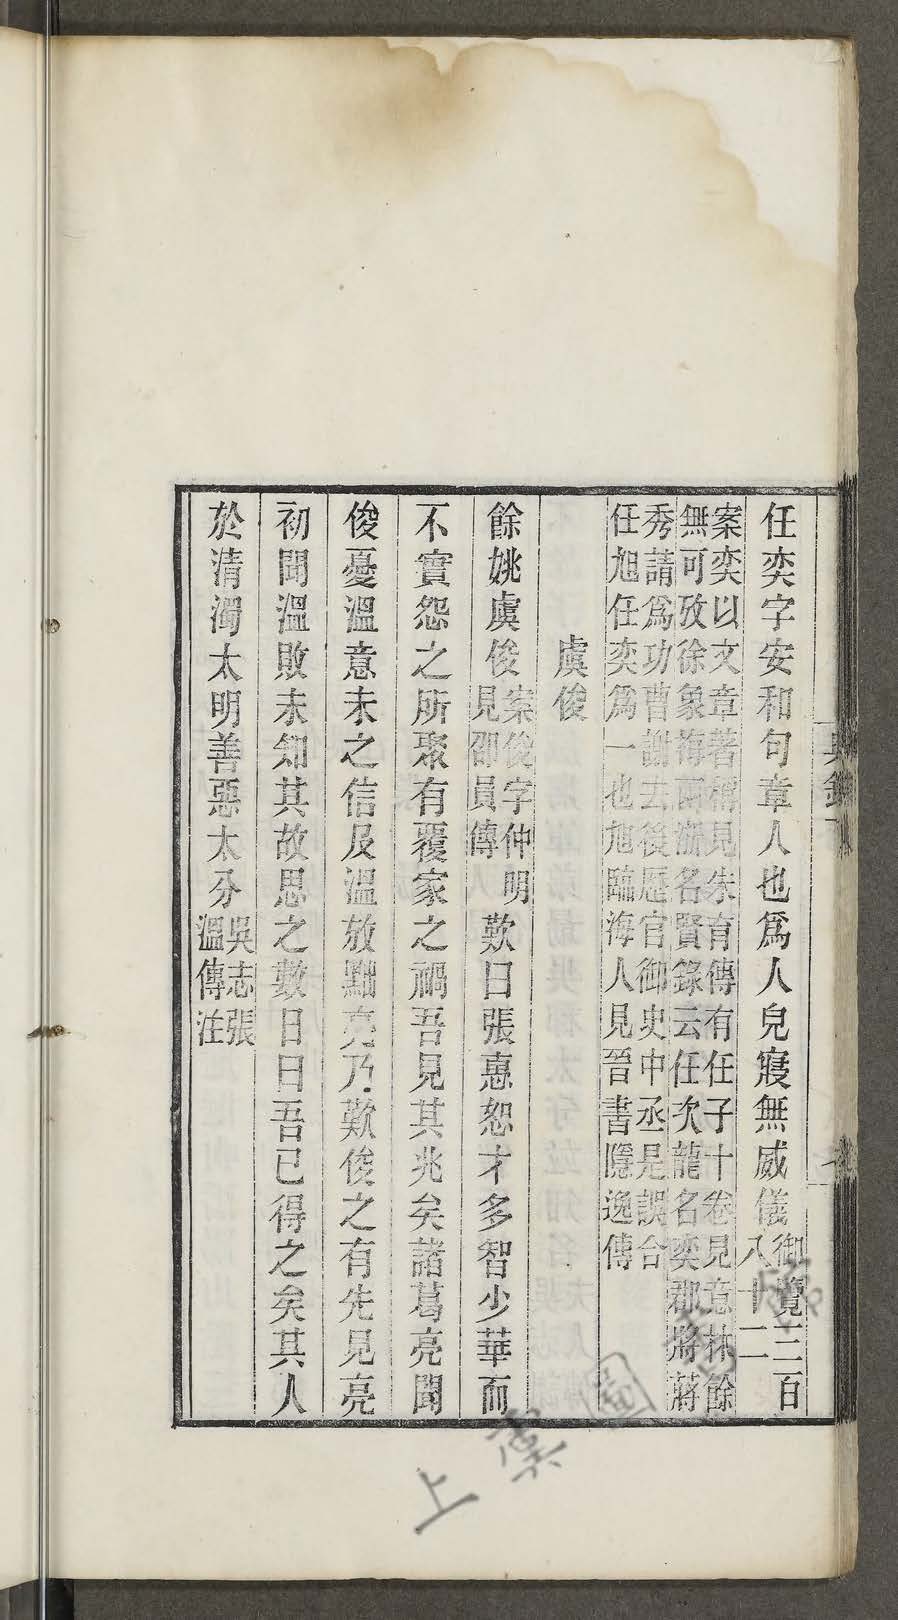 任奕字安和句章人也爲人皃寢無威儀御覽三百
八十二
案奕以文章著稱見朱育傳有任子十卷見意林餘
無可攷徐象梅兩浙名賢錄云任次龍名奕郡將蔣
秀請爲功曹謝去後歷官御史中丞是誤合
任旭任奕爲一也旭臨海人見晉書隱逸傳
虞俊
餘姚虞俊案俊字仲明
見邵員傳歎曰張惠恕才多智少華而
不實怨之所聚有覆家之禍吾見其兆矣諸葛亮聞
俊憂溫意未之信及溫放黜亮乃歎俊之有先見亮
初聞溫敗未知其故思之數日曰吾已得之矣其人
於清濁太明善惡太分吳志張
溫傳注
典錄
上虞圖書館